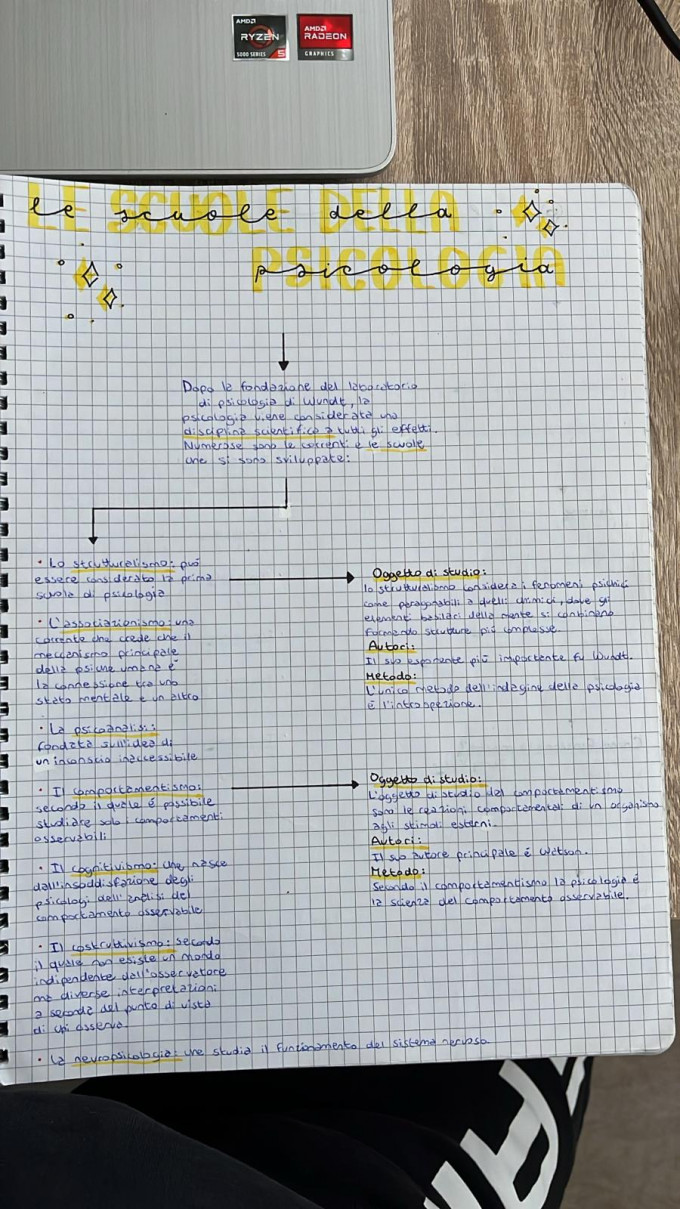 AMD
RYZEN
5000 SERIES 5
AMD
RADEON
GRAPHICS
LE SCUOLE DELLA
le scuole della
PSICOLOGIA
psicologia
Dopo la fondazione del laboratorio
di psicologia di Wundt, la
psicologia viene considerata una
disciplina scientifica a tutti gli effetti.
Numerose sono le correnti e le scuole
che si sono sviluppate:
• Lo strutturalismo: può
essere considerato la prima
scuola di psicologia
• L'associazionismo: una
corrente che crede che il
meccanismo principale
della psiche umana è
la connessione tra uno
stato mentale e un altro
• La psicoanalisi:
fondata sull'idea di
un inconscio inaccessibile
• Il comportamentismo:
secondo il quale è possibile
studiare solo i comportamenti
osservabili
• Il cognitivismo: che nasce
dall'insoddisfazione degli
psicologi dell'analisi del
comportamento osservabile
• Il costruttivismo: secondo
il quale non esiste un mondo
indipendente dall'osservatore
ma diverse interpretazioni
a seconda del punto di vista
di chi osserva.
• La neuropsicologia: che studia il funzionamento del sistema nervoso.
Oggetto di studio:
lo strutturalismo considera i fenomeni psichici
come paragonabili a quelli chimici, dove gli
elementi basilari della mente si combinano
formando strutture più complesse.
Autori:
Il suo esponente più importante fu Wundt.
Metodo:
L'unico metodo dell'indagine della psicologia
è l'introspezione.
Oggetto di studio:
L'oggetto di studio del comportamentismo
sono le reazioni comportamentali di un organismo
agli stimoli esterni.
Autori:
Il suo autore principale è Watson.
Metodo:
Secondo il comportamentismo la psicologia è
la scienza del comportamento osservabile.